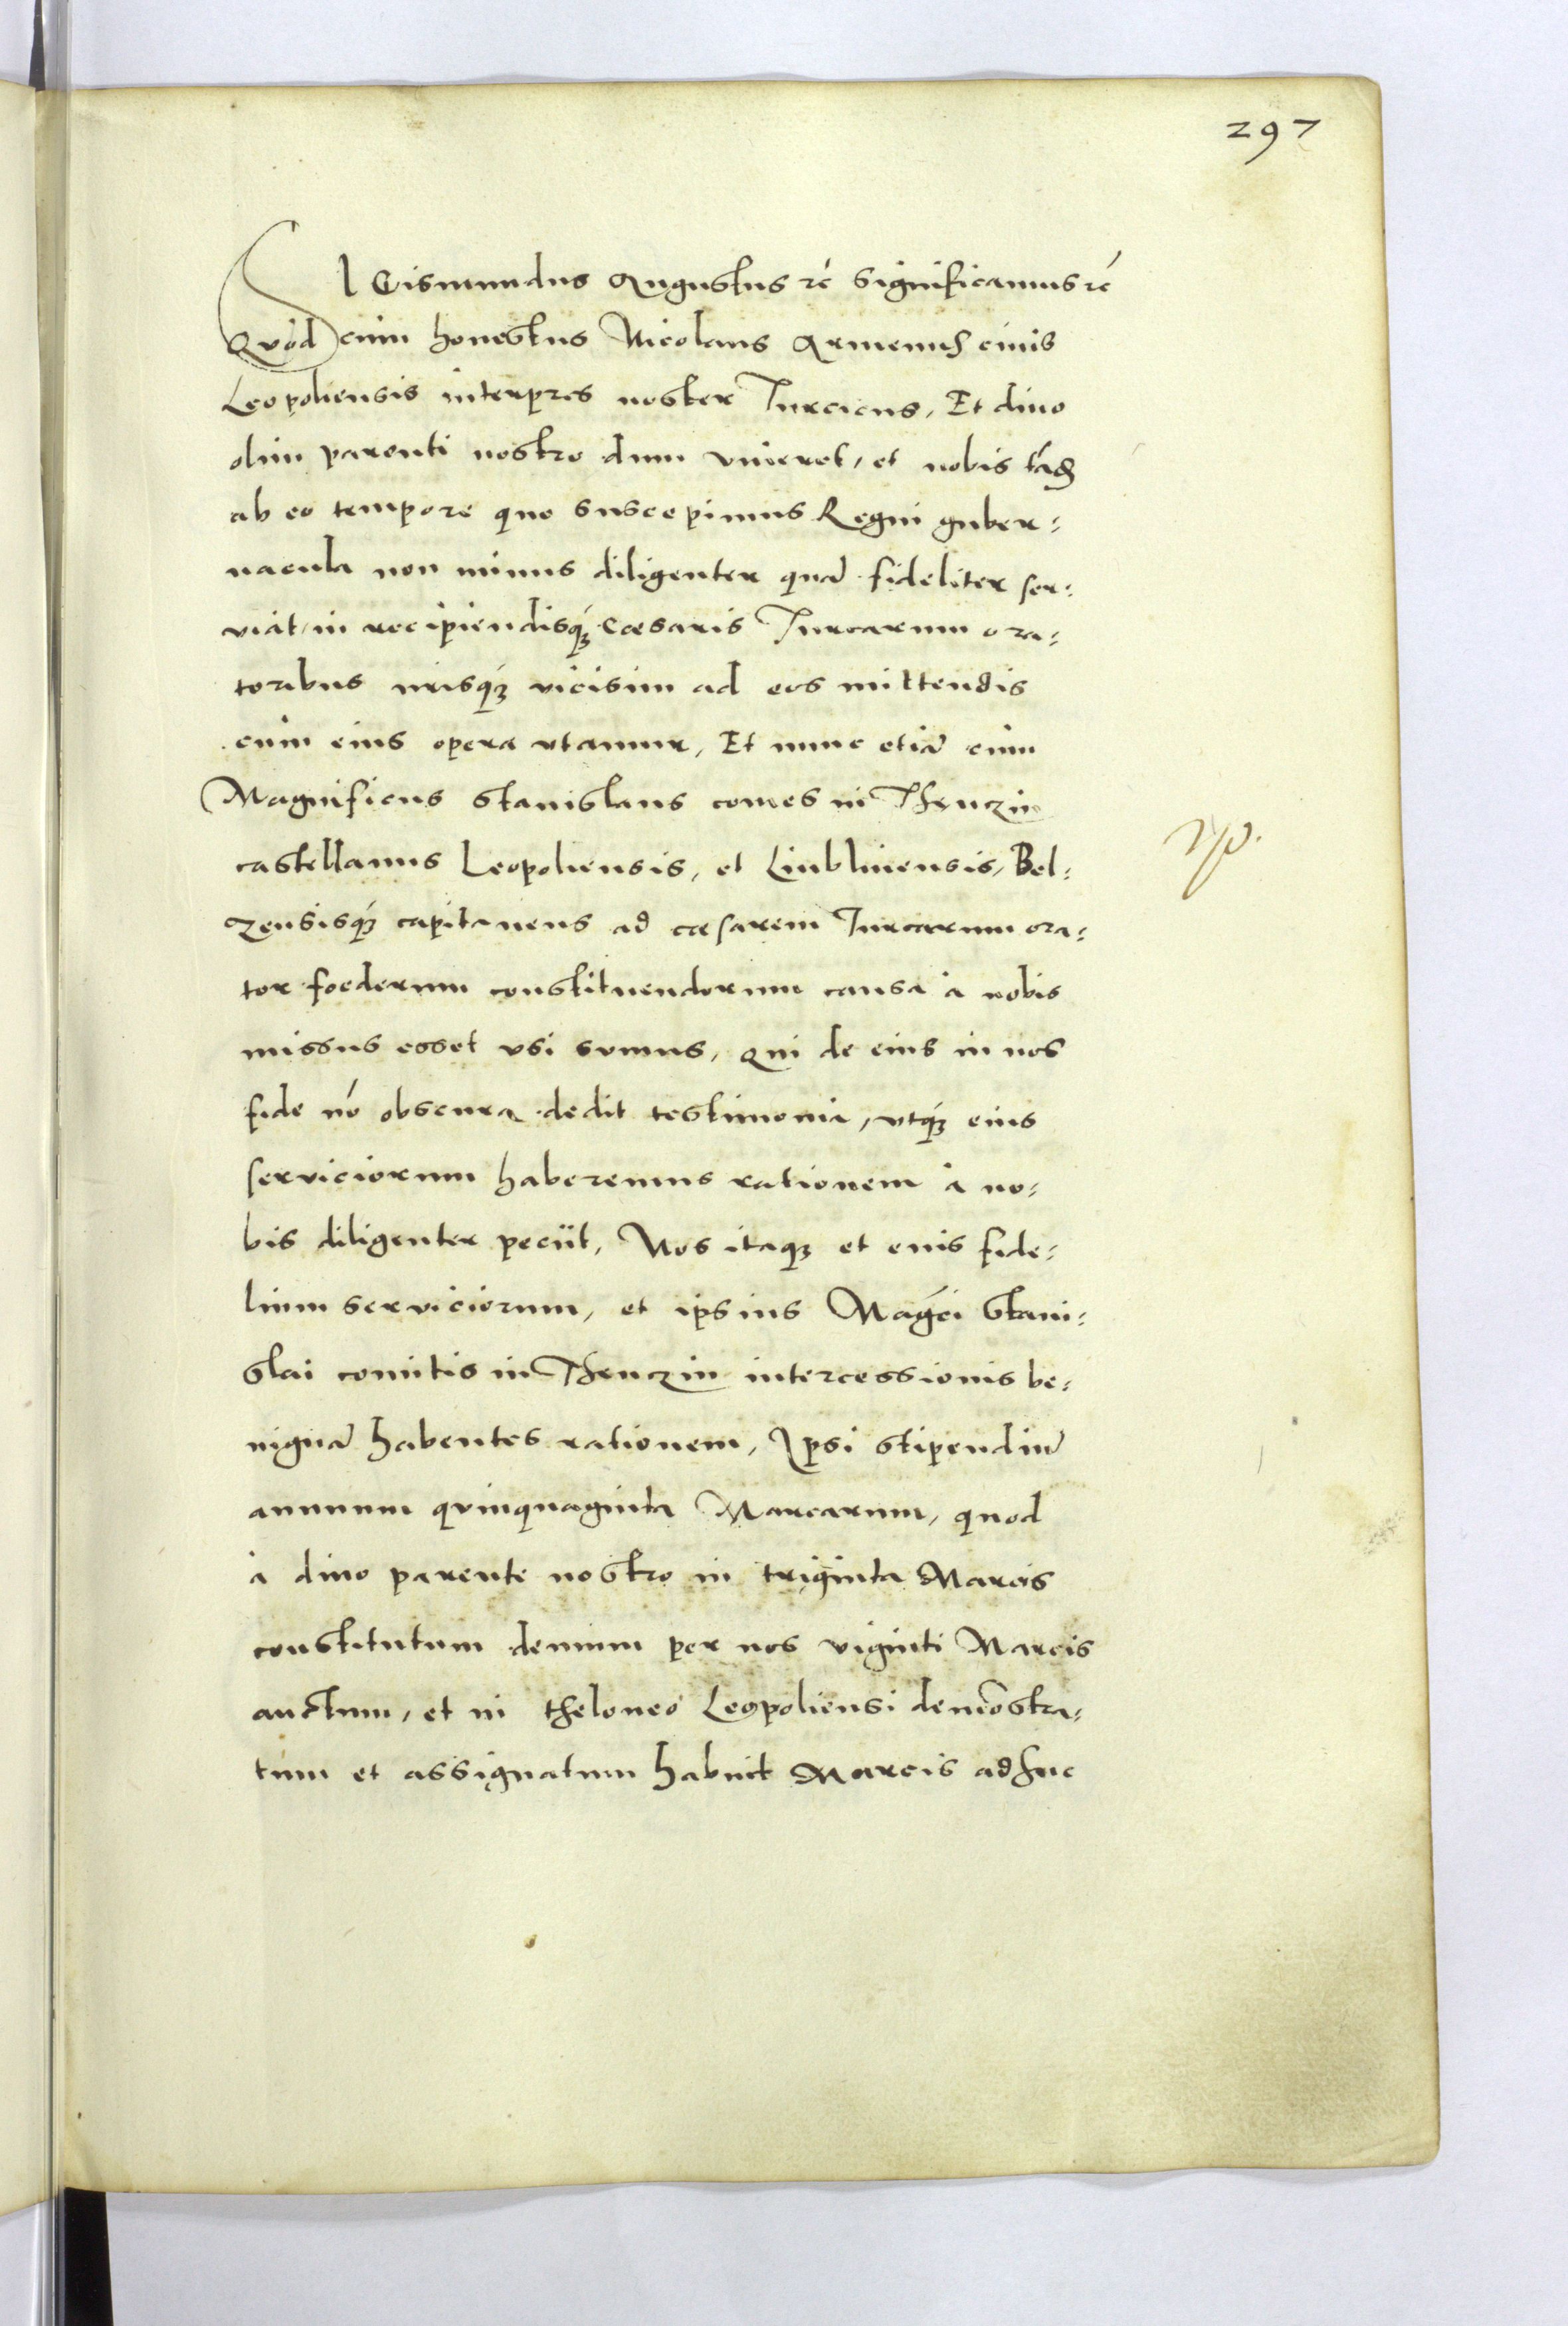 297
SIGismundus Augustus rc̃ significamus rc̃
Quòd cùm honestus Nicolaus Armenus ciuis
Leopoliensis interpres noster Turcicus, Et diuo
olim parenti nostro dum viueret, et nobis
ab eo tempore quo suscepimus Regni guber:
nacula non minus diligenter quã fideliter ser:
viat, in recipiendisq́ꝫ Cæsaris Turcarum ora:
toribus nr̃isq́ꝫ vicisim ad eos mittendis
cùm eius opera vtamur, Et nunc etiã cùm
Magnificus Stanislaus comes in Thenczin
castellanus Leopoliensis, et Liublinensis, Bel:
zensisq́ꝫ capitaneus ad cæsarem Turcarum ora:
tor foederum constituendorum causa à nobis
missus esset vsi sumus, qui de eius in nos
fide nõ obscura dedit testimonia, vtq́ꝫ eius
serviciorum haberemus rationem à no:
bis diligenter peciit, Nos itaqꝫ et eius fide:
lium serviciorum, et ipsius Mag̃ci Stani:
slai comitis in Thenczin intercessionis be:
nignã habentes rationem, Ipsi stipendiũ
annuum quinquaginta Marcarum, quod
à diuo parente nostro in triginta Marcis
constitutum demum per nos viginti Marcis
auctum, et in theloneo Leopoliensi demõstra:
tum et assignatum habuit Marcis adhuc